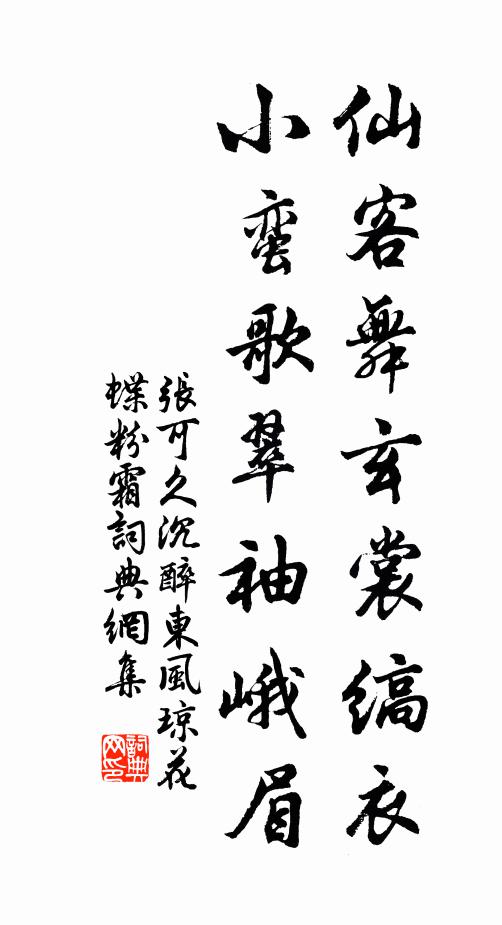 仙客舞玄裳縞衣
小蛮歌翠袖峨眉
張可久沉醉東風琼花
蝶粉霜詞典網集
詞典网印